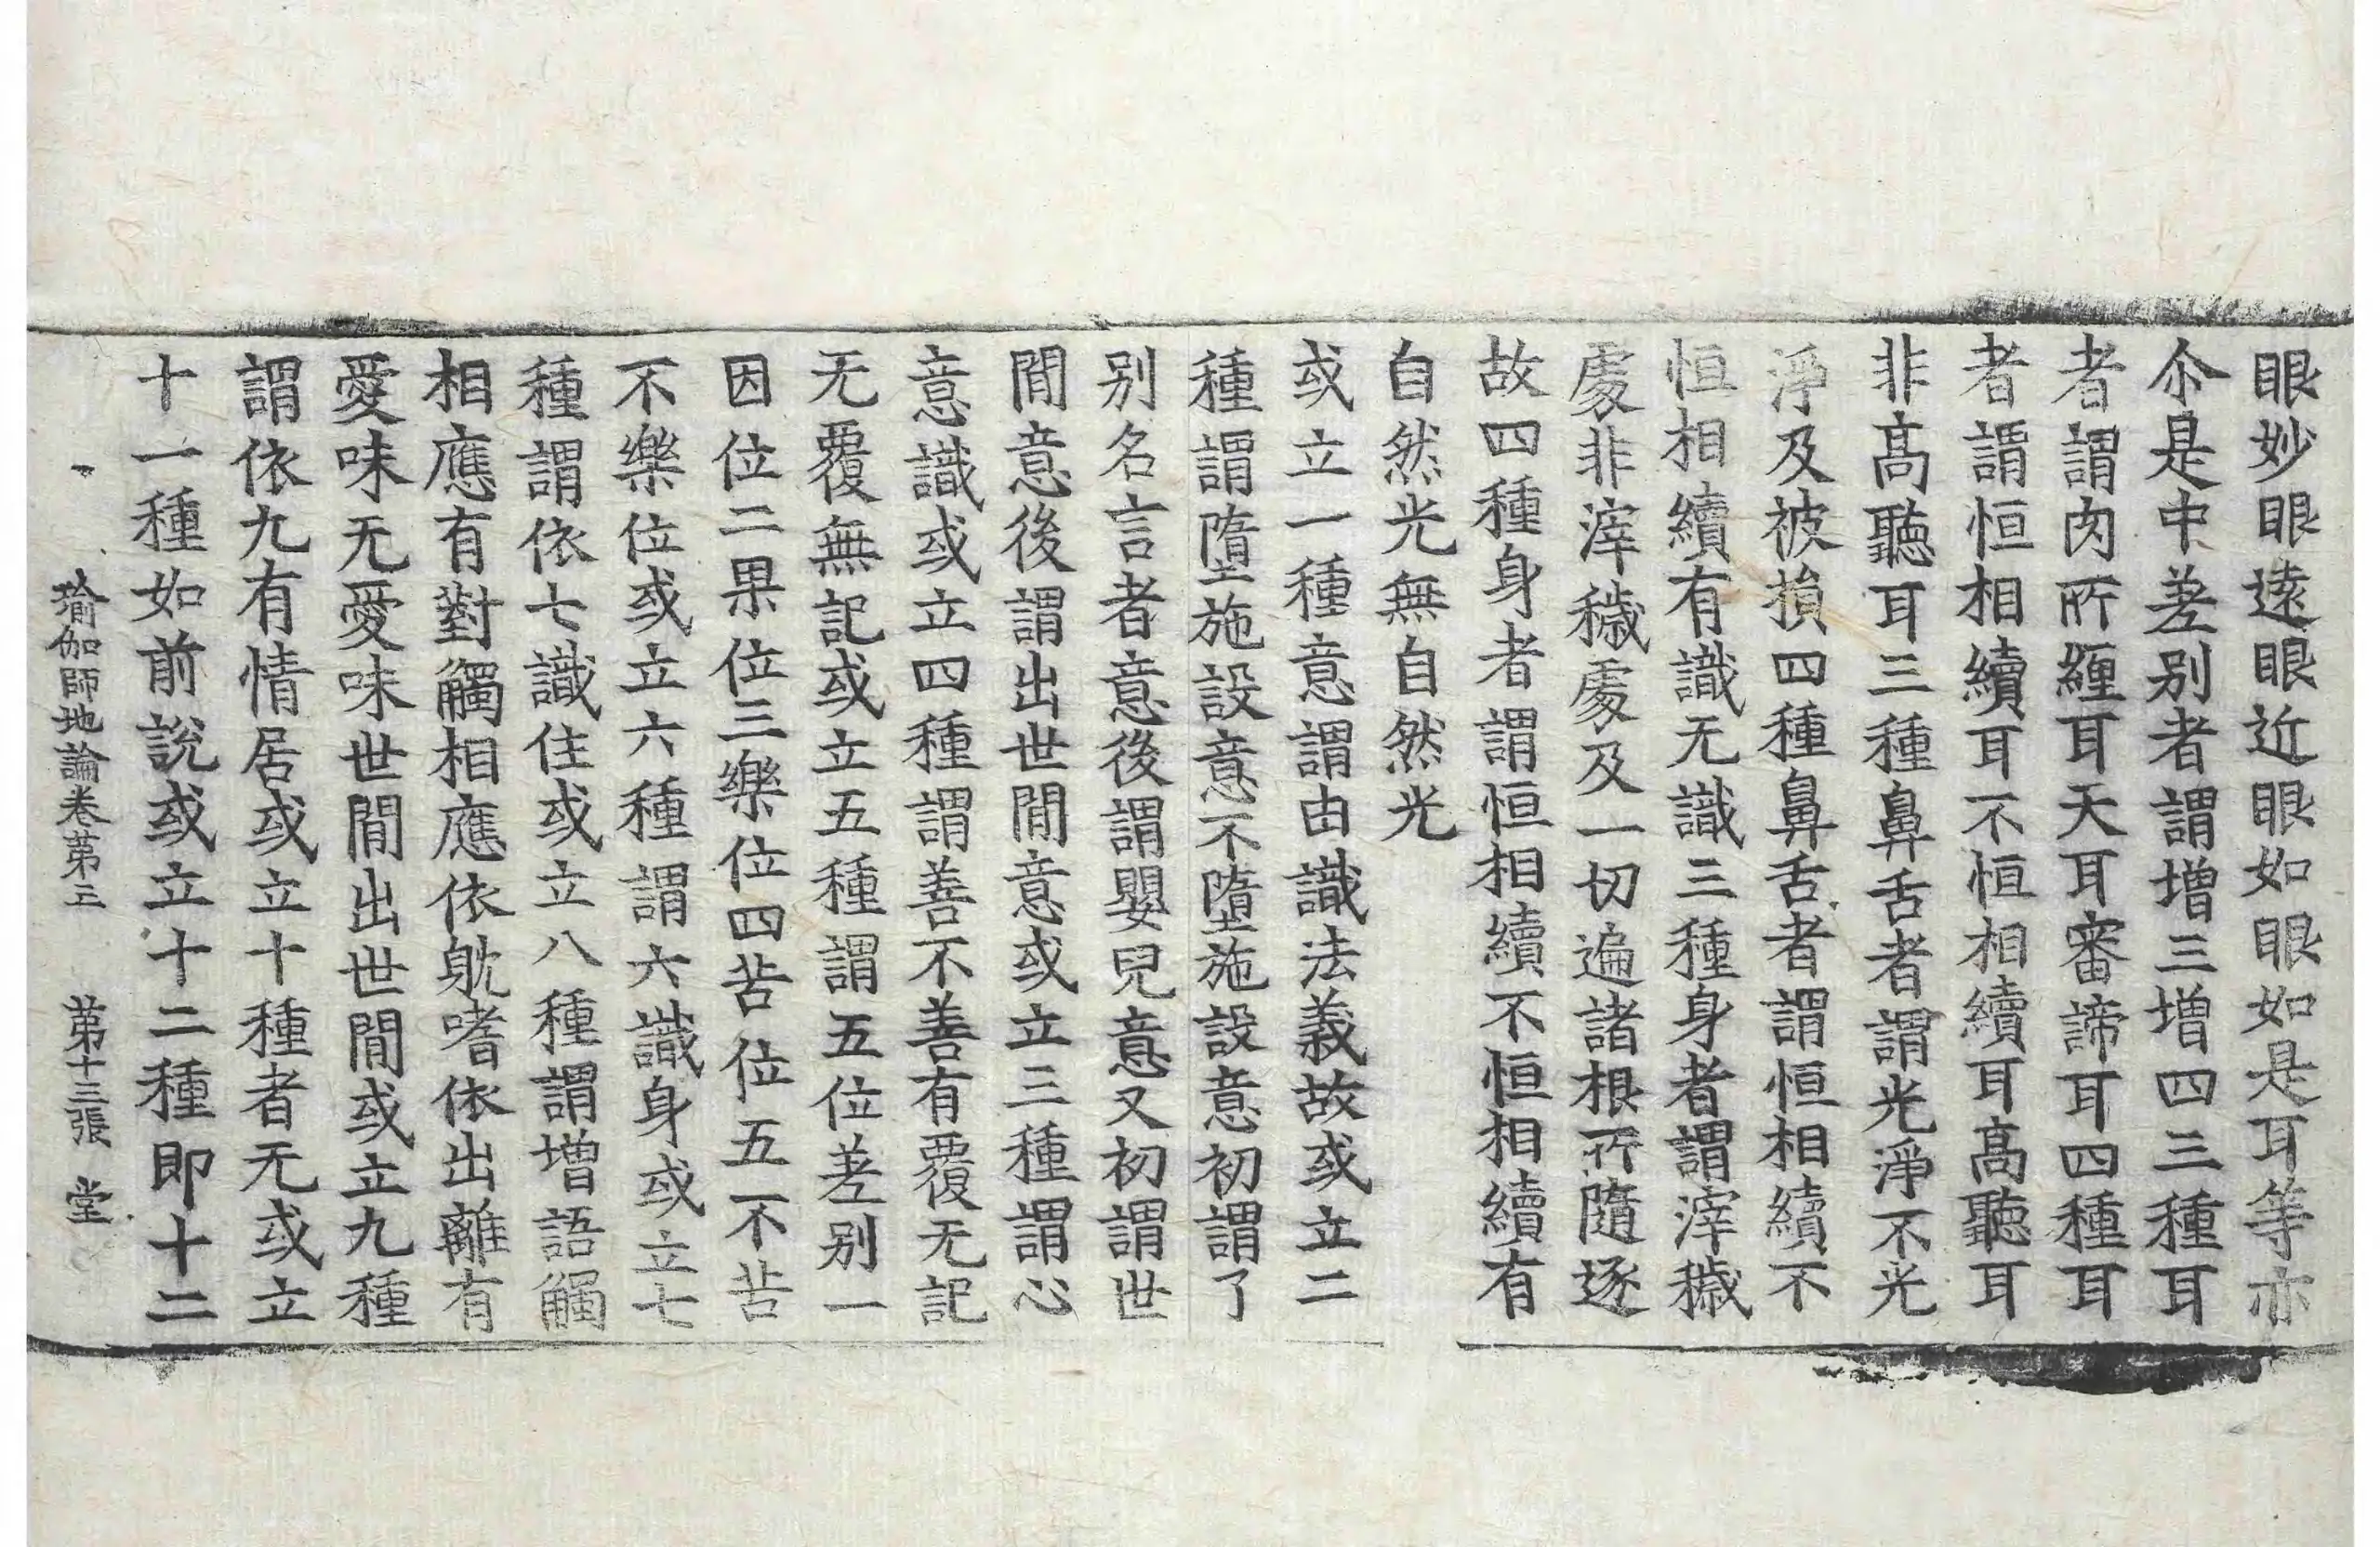 眼妙眼遠眼近眼如眼如是耳等亦
尒是中差别者謂增三增四三種耳
者謂肉所纏耳天耳審諦耳四種耳
者謂恒相續耳不恒相續耳高聽耳
非高聽耳三種鼻舌者謂光淨不光
淨及被損四種鼻舌者謂恒相續不
恒相續有識无識三種身者謂滓穢
處非滓穢處及一切遍諸根所隨逐
故四種身者謂恒相續不恒相續有
自然光無自然光
或立一種意謂由識法義故或立二
種謂墮施設意不墮施設意初謂了
别名言者意後謂嬰兒意又初謂世
間意後謂出世間意或立三種謂心
意識或立四種謂善不善有覆无記
无覆無記或立五種謂五位差别一
因位二果位三樂位四苦位五不苦
不樂位或立六種謂六識身或立七
種謂依七識住或立八種謂增語觸
相應有對觸相應依躭嗜依出離有
愛味无愛味世間出世間或立九種
謂依九有情居或立十種者无或立
十一種如前說或立十二種即十二
瑜伽師地論卷第三 第十三張 堂